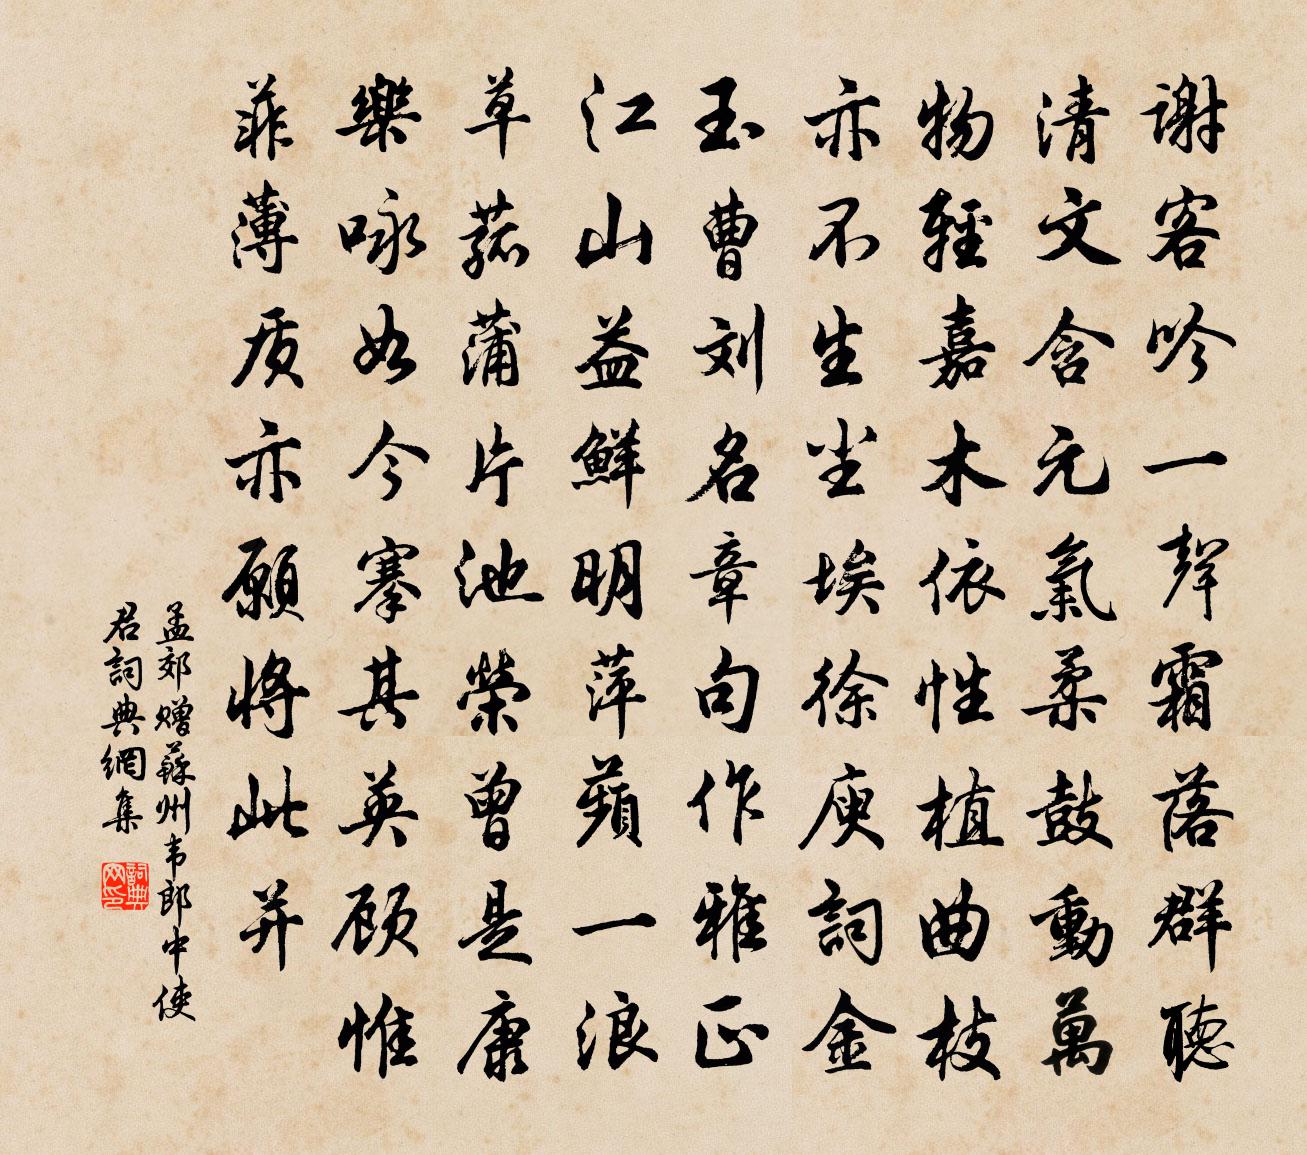 謝客吟一聲霜落群聽
清文含元氣柔鼓動萬
物輕嘉木依性植曲枝
亦不生尘埃徐庾詞金
玉曹刘名章句作雅正
江山益鮮明萍蘋一浪
草菰蒲片池榮曾是康
樂咏如今搴其英顾惟
菲薄质亦願将此并
孟郊赠蘇州韦郎中使
君詞典網集
詞典网印